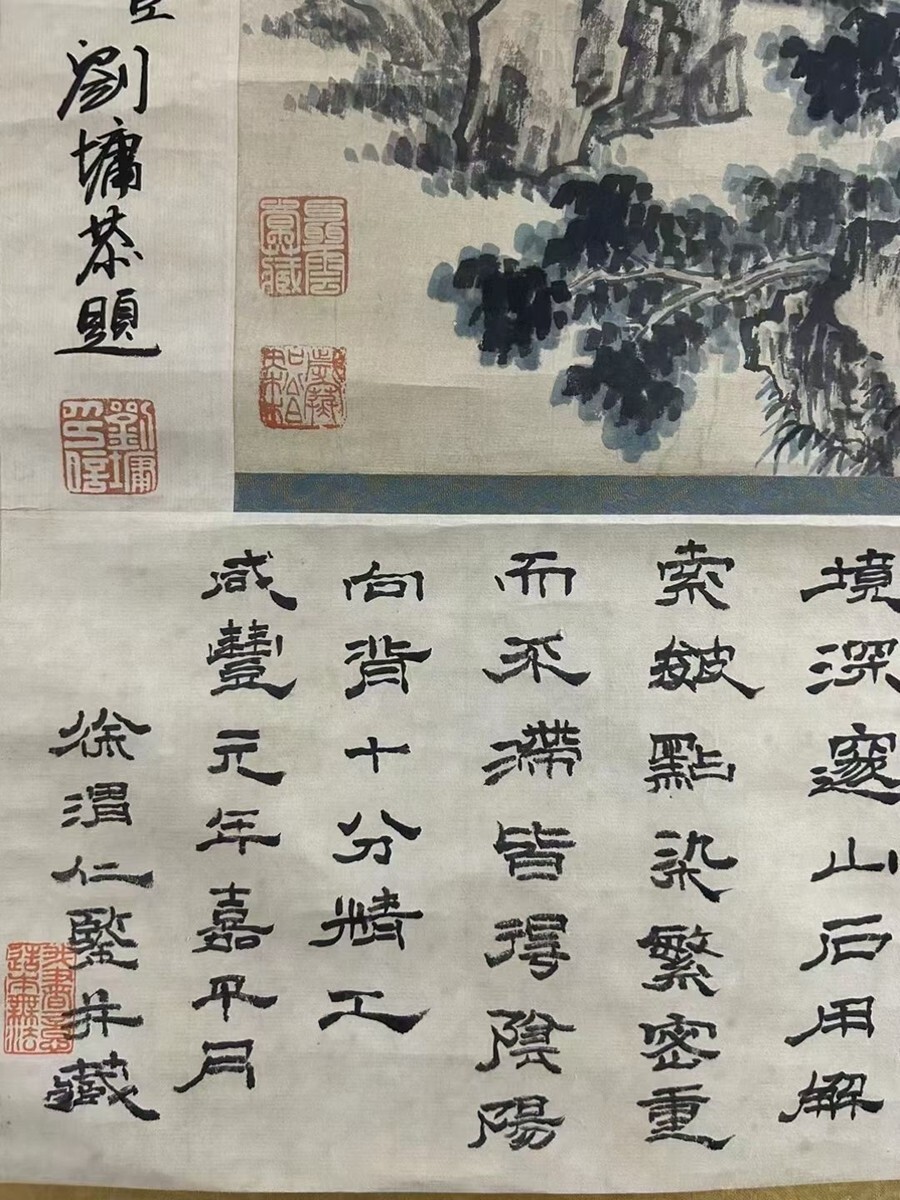 劉墉恭題
劉墉印信
境深邃山石用解
索皴點染繁密重
而不滯皆得陰陽
向背十分精工
咸豐元年嘉平月
徐渭仁鑒并藏
我書意造本無法